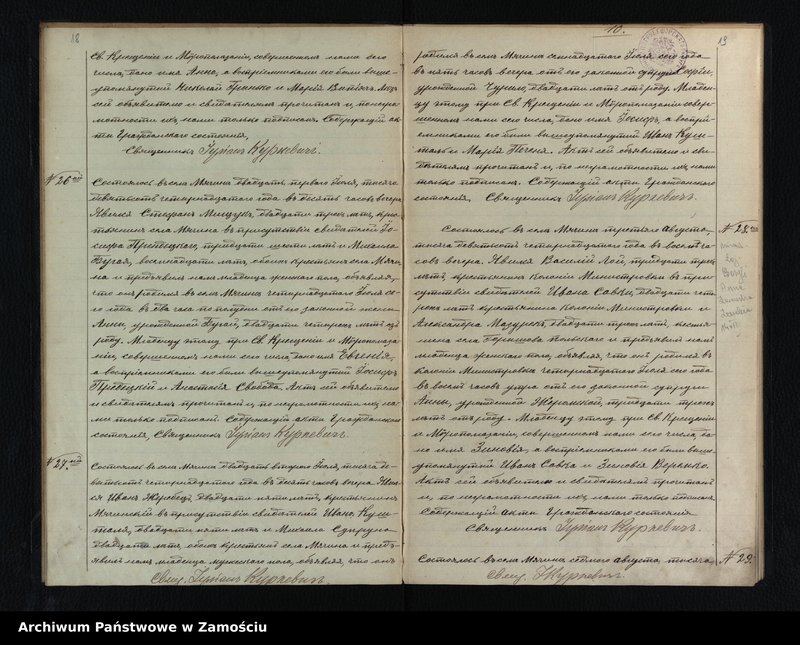 18
Св. Крещеніи и Мѵропомазаніи, совершенномъ нами сего
числа, дано имя Анна, а воспріемниками его были выше-
упомянутый Николай и Марія Актъ
сей объявителю и свидѣтелямъ прочитанъ и по негра-
мотности ихъ нами только подписанъ. Содержащій ак-
ты Гражданскаго состоянія,
Священникъ Куркевичъ.
№ 26
Состоялось въ селѣ Мячинѣ двадцать перваго Іюля, тысяча
девятьсотъ четырнадцатаго года въ десять часовъ вечера.
Явился Стефанъ двадцати трехъ лѣтъ, кре-
стьянинъ села Мячина въ присутствіи свидѣтелей Іо-
сифа тридцати шести лѣтъ и Михаила
Бугая, восемнадцати лѣтъ, обоихъ крестьянъ села Мячи-
на и предъявилъ намъ младенца женскаго пола, объявляя,
что онъ родился въ селѣ Мячинѣ четырнадцатаго Іюля се-
го года въ два часа по полудни отъ его законной жены
Анны, урожденной Бугай, двадцати четырехъ лѣтъ отъ
роду. Младенцу этому при Св. Крещеніи и Мѵропомаза-
ніи, совершенномъ нами сего числа, дано имя Евгенія,
а воспріемниками его были вышеупомянутый Іосифъ
и Анастасія Свобода. Актъ сей объявителю
и свидѣтелямъ прочитанъ и, по неграмотности ихъ на-
ми только подписанъ. Содержащій акты Гражданскаго
состоянія, Священникъ Куркевичъ.
№ 27
Состоялось въ селѣ Мячинѣ двадцать втораго Іюля, тысяча де-
вятьсотъ четырнадцатаго года въ десять часовъ вечера. Явил-
ся Иванъ Жеребецъ, двадцати пяти лѣтъ, крестьянинъ
Мячинскій въ присутствіи свидѣтелей Ивана
двадцати пяти лѣтъ и Михаила
двадцати лѣтъ, обоихъ крестьянъ села Мячина и предъ-
явилъ намъ младенца мужескаго пола, объявляя, что онъ
Свящ. Куркевичъ.
10.
19
родился въ селѣ Мячинѣ семнадцатаго Іюля сего года
въ пять часовъ вечера отъ его законной супруги Софіи,
урожденной двадцати лѣтъ отъ роду. Младен-
цу этому при Св. Крещеніи и Мѵропомазаніи совер-
шенномъ нами сего числа, дано имя Іосифъ, а воспрі-
емниками его были вышеупомянутый Иванъ
и Марія Актъ сей объявителю и сви-
дѣтелямъ прочитанъ и, по неграмотности ихъ, нами
только подписанъ. Содержащій акты Гражданскаго
состоянія, Священникъ Куркевичъ.
№ 28
Состоялось въ селѣ Мячинѣ третьяго Августа,
тысяча девятьсотъ четырнадцатаго года въ восемь ча-
совъ вечера. Явился Василій Лой, тридцати трехъ
лѣтъ, крестьянинъ колоніи Министровки въ при-
сутствіи свидѣтелей Ивана Савки, двадцати четы-
рехъ лѣтъ крестьянина колоніи Министровки и
Александра Мазурека, двадцати трехъ лѣтъ, крестья-
нина села и предъявилъ намъ
младенца женскаго пола, объявляя, что онъ родился въ
колоніи Министровкѣ четырнадцатаго Іюля сего года
въ восемь часовъ утра отъ его законной супруги
Анны, урожденной тридцати трехъ
лѣтъ отъ роду. Младенцу этому при Св. Крещеніи
и Мѵропомазаніи, совершенномъ нами сего числа, да-
но имя Зиновія, а воспріемниками его были выше-
упомянутый Иванъ Савка и Зиновія
Актъ сей объявителю и свидѣтелямъ прочитанъ
и, по неграмотности ихъ, нами только подписанъ
Содержащій акты Гражданскаго состоянія
Священникъ Куркевичъ.
№ 29.
Состоялось въ селѣ Мячинѣ седьмого Августа, тысяча
Свящ. Куркевичъ.
Archiwum Państwowe w Zamościu